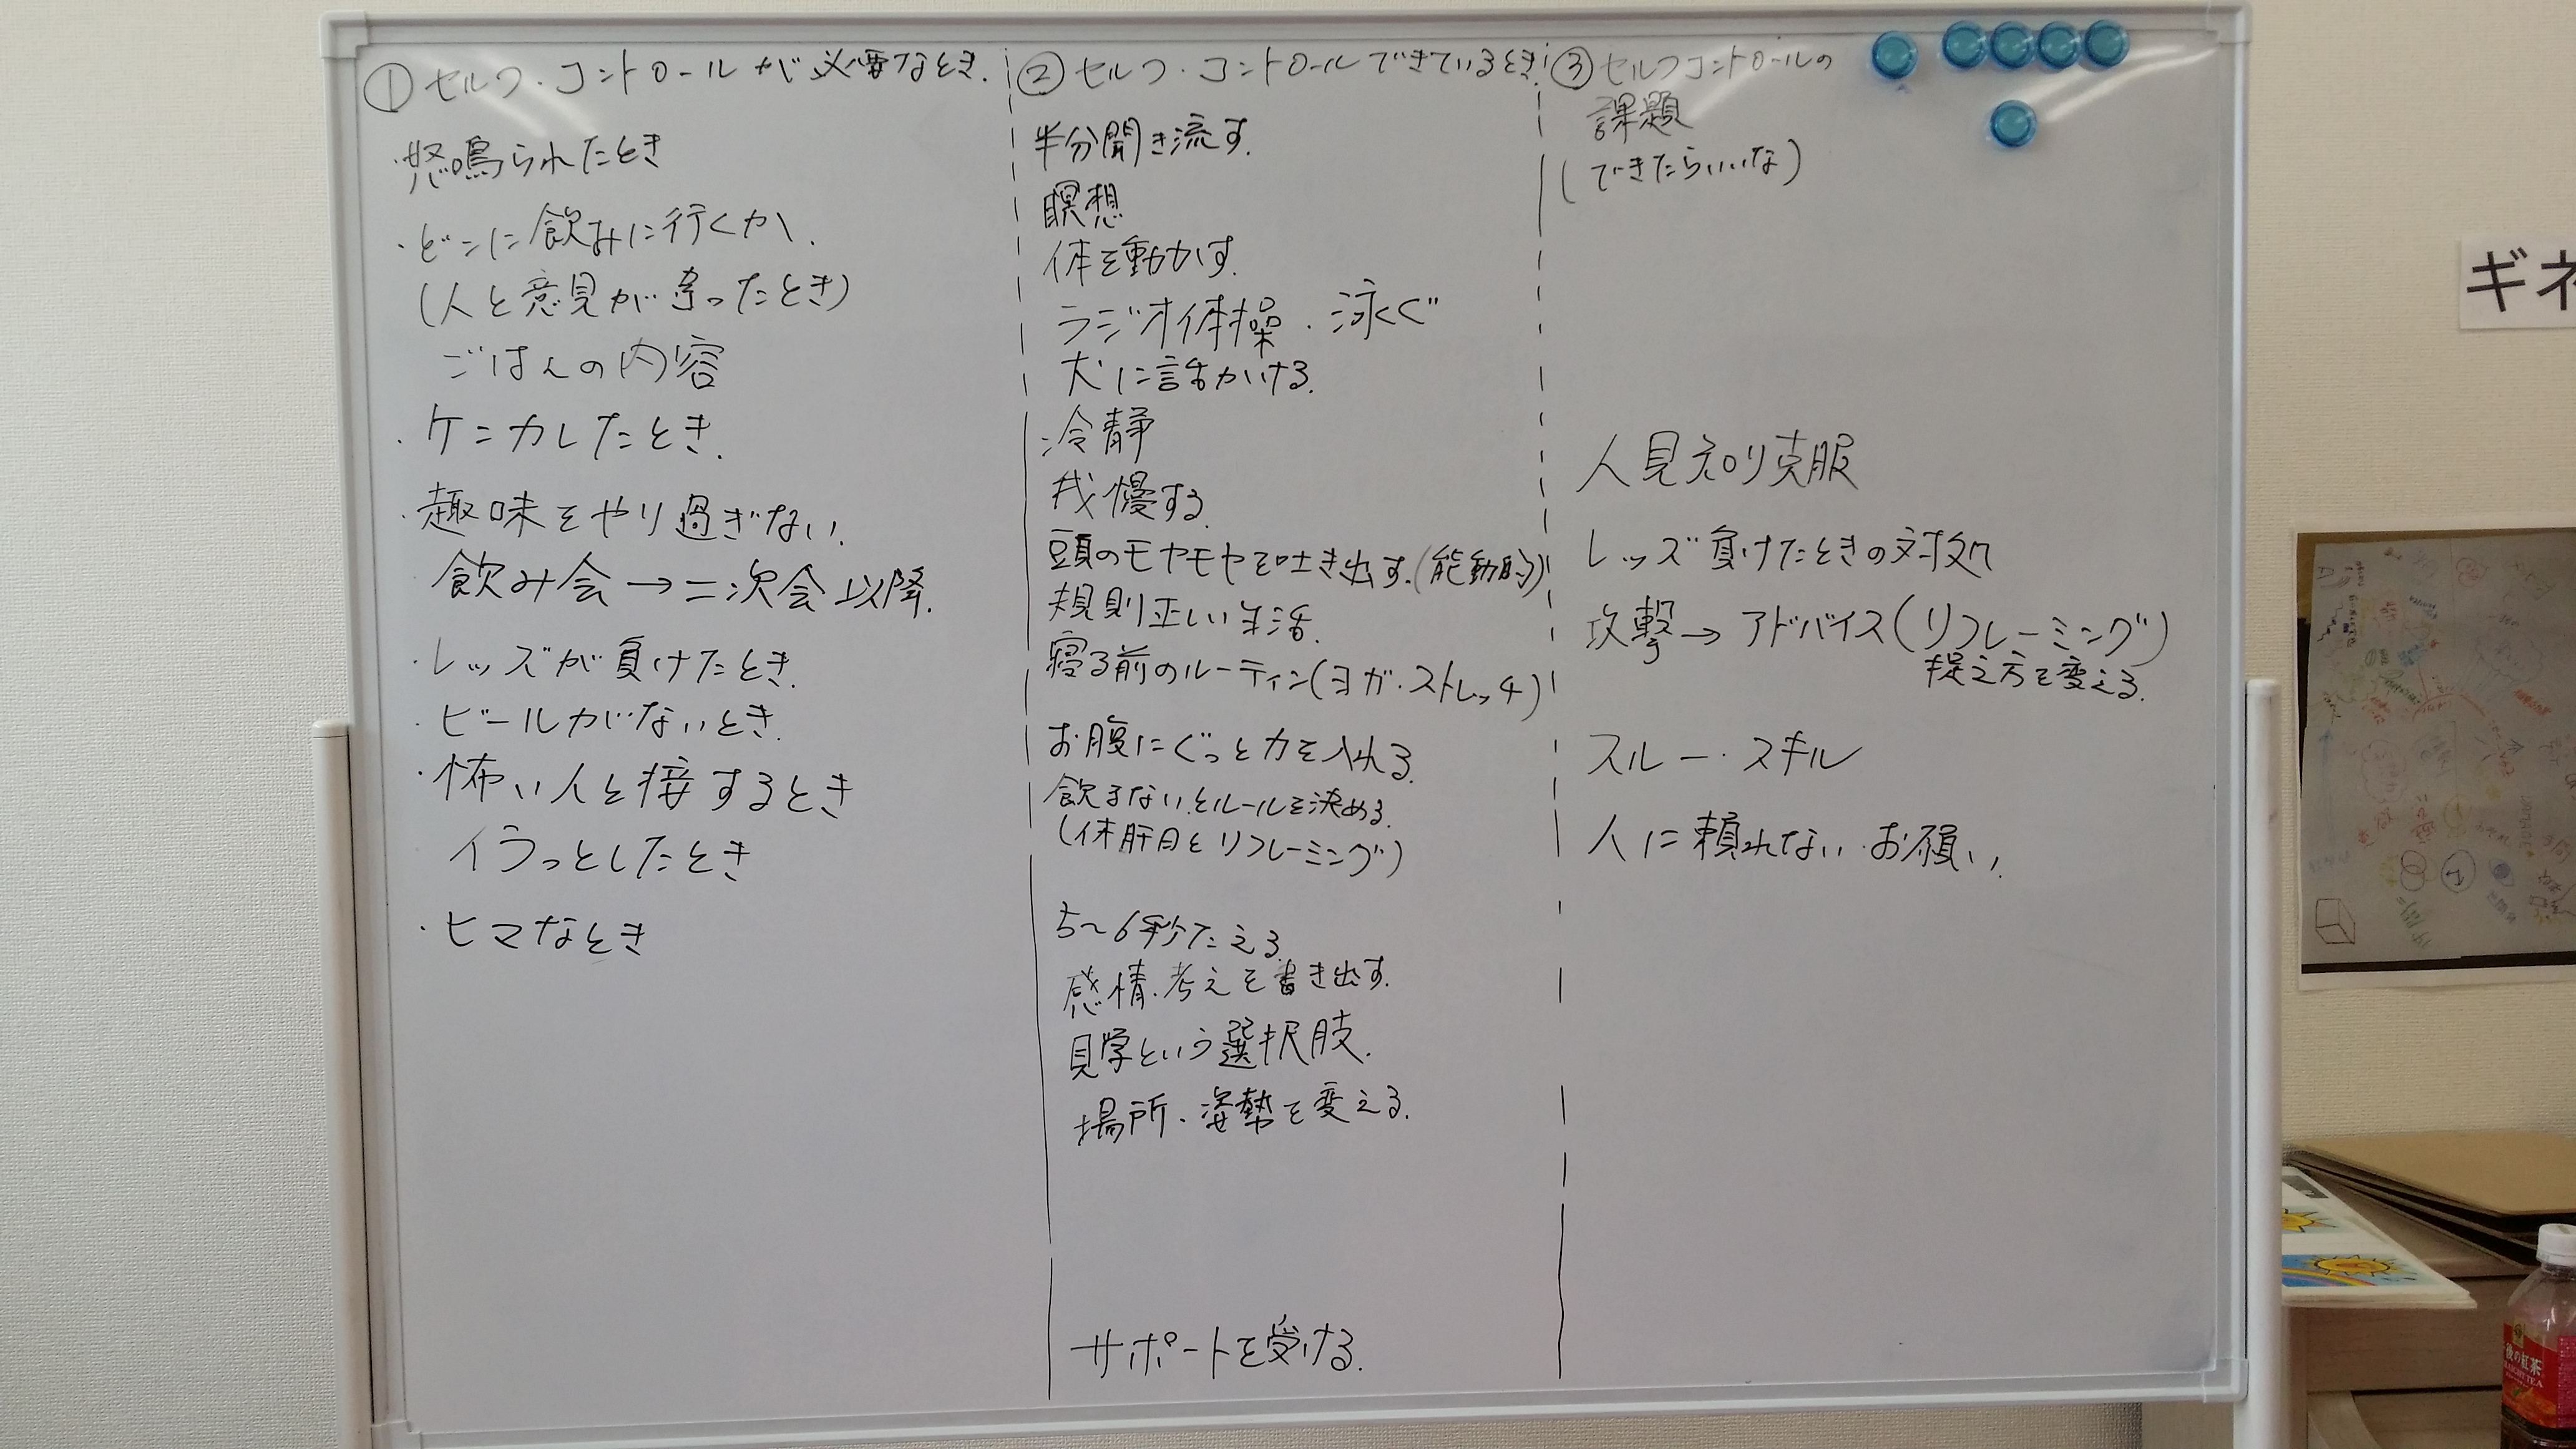 ①セルフ・コントロールが必要なとき.
・怒鳴られたとき
・どこに飲みに行くか.
(人と意見が違ったとき)
ごはんの内容
・ケンカしたとき.
・趣味をやり過ぎない.
飲み会→二次会以降.
・レッズが負けたとき.
・ビールがないとき.
・怖い人と接するとき
イラっとしたとき
・ヒマなとき
②セルフ・コントロールできているとき
半分聞き流す.
瞑想
体を動かす.
ラジオ体操・泳ぐ
犬に話かける.
冷静
我慢する.
頭のモヤモヤを吐き出す.(能動的)
規則正しい生活.
寝る前のルーティン(ヨガ・ストレッチ)
お腹にぐっと力を入れる.
飲まないとルールを決める.
(休肝日とリフレーミング)
5〜6秒たえる.
感情.考えを書き出す.
見学という選択肢.
場所・姿勢を変える.
サポートを受ける.
③セルフコントロールの
課題
(できたらいいな)
人見知り克服
レッズ負けたときの対処
攻撃→アドバイス(リフレーミング)
捉え方を変える.
スルー・スキル
人に頼れない・お願い.
ギネ
後の紅茶